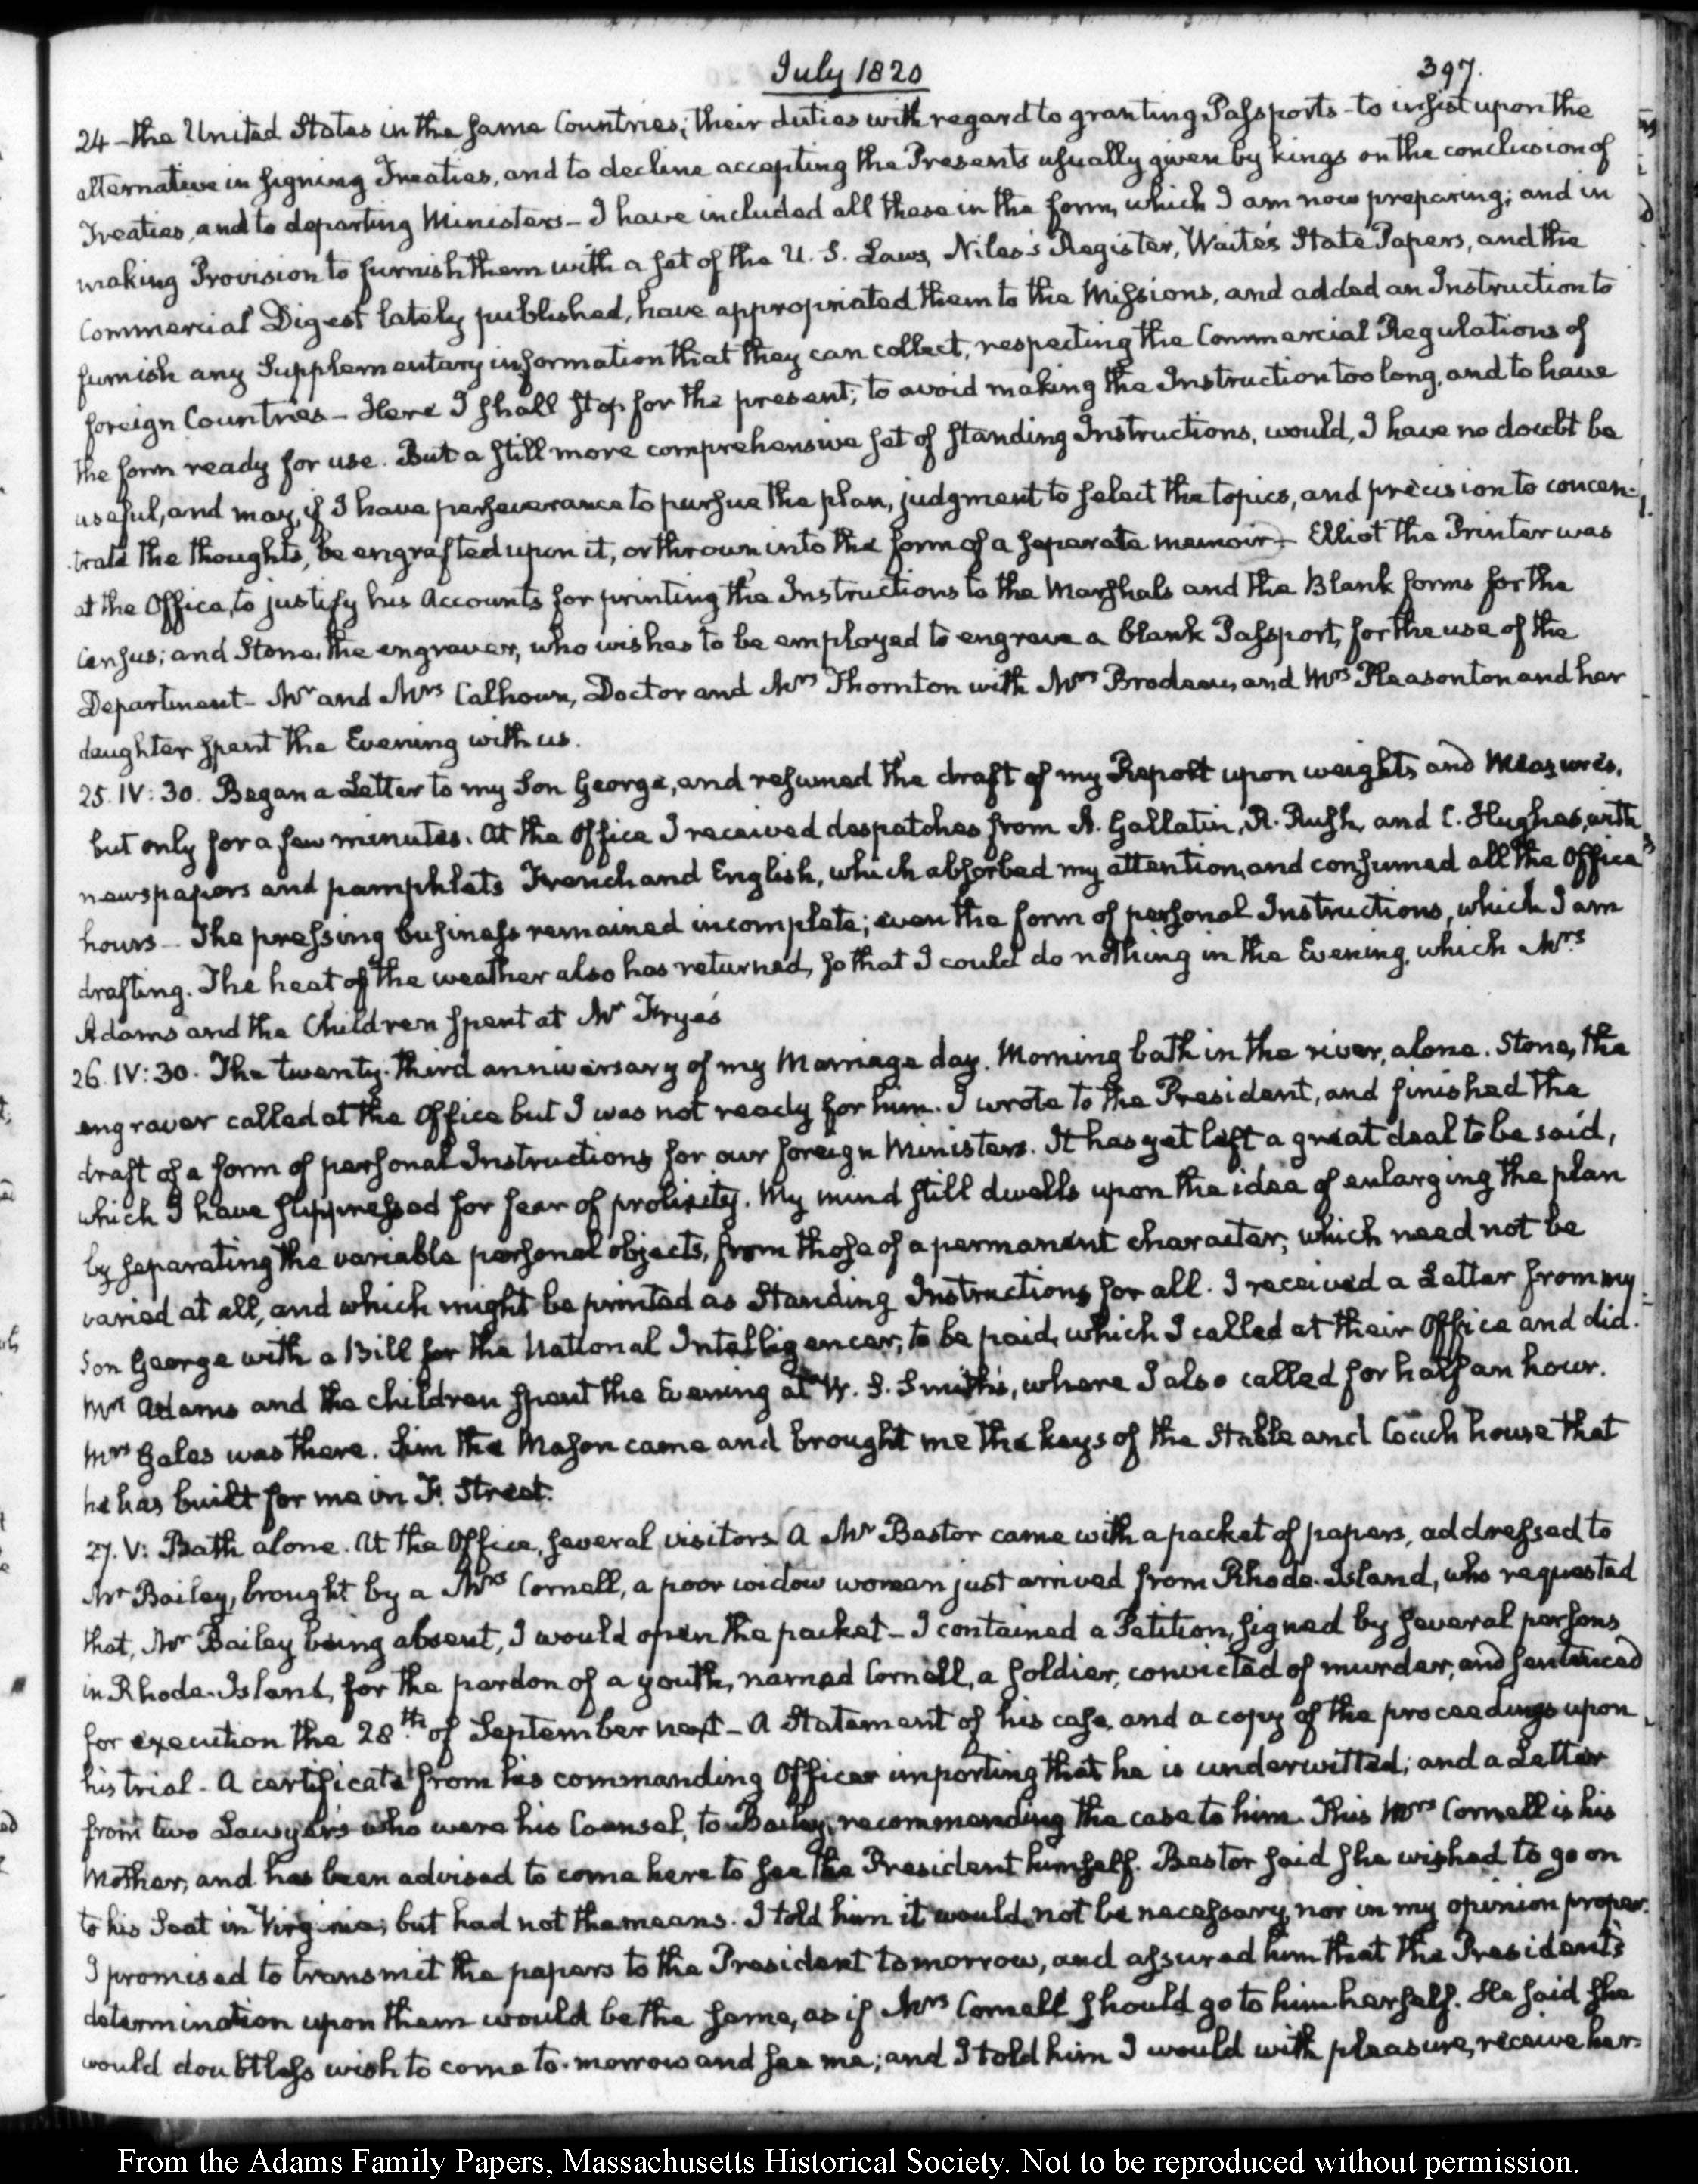 July 1820
397.
24 - the United States in the same Countries; their duties with regard to granting Passports - to insist upon the
alternative in signing Treaties, and to decline accepting the Presents usually given by kings on the conclusion of
Treaties, and to departing Ministers - I have included all these in the form, which I am now preparing; and in
making Provision to furnish them with a set of the U. S. Laws, Niles's Register, Waite's State Papers, and the
Commercial Digest lately published, have appropriated them to the Missions, and added an Instruction to
furnish any Supplementary information that they can collect, respecting the Commercial Regulations of
foreign Countries - Here I shall stop for the present; to avoid making the Instruction too long, and to have
the form ready for use. But a still more comprehensive set of standing Instructions, would, I have no doubt be
useful, and may, if I have perseverance to pursue the plan, judgment to select the topics, and precision to concen-
trate the thoughts, be engrafted upon it, or thrown into the form of a separate memoir - Elliot the Printer was
at the Office, to justify his Accounts for printing the Instructions to the Marshals and the Blank forms for the
Census; and Stone, the engraver, who wishes to be employed to engrave a blank Passport, for the use of the
Department - Mr and Mrs Calhoun, Doctor and Mrs Thornton with Mrs Brodeau, and Mrs Pleasonton and her
daughter spent the Evening with us.
25. IV: 30. Began a Letter to my Son George, and resumed the draft of my Report upon weights and Measures,
but only for a few minutes. At the Office I received despatches from A. Gallatin, R. Rush, and C. Hughes, with
newspapers and pamphlets French and English, which absorbed my attention, and consumed all the Office
hours - The pressing business remained incomplete; even the form of personal Instructions, which I am
drafting. The heat of the weather also has returned, so that I could do nothing in the Evening, which Mrs
Adams and the Children spent at Mr Frye's
26. IV: 30. The twenty-third anniversary of my Marriage day. Morning bath in the river, alone. Stone, the
engraver called at the Office but I was not ready for him. I wrote to the President, and finished the
draft of a form of personal Instructions for our foreign Ministers. It has yet left a great deal to be said,
which I have suppressed for fear of prolixity. My mind still dwells upon the idea of enlarging the plan
by separating the variable personal objects, from those of a permanent character, which need not be
varied at all, and which might be printed as Standing Instructions for all. I received a Letter from my
Son George with a Bill for the National Intelligencer, to be paid, which I called at their Office and did.
Mrs Adams and the children spent the Evening at W. S. Smith's, where I also called for half an hour.
Mrs Gales was there. Sim the Mason came and brought me the keys of the Stable and Coach house that
he has built for me in F. Street.
27. V: Bath alone. At the Office, several visitors. A Mr Bestor came with a packet of papers, addressed to
Mr Bailey, brought by a Mrs Cornell, a poor widow woman just arrived from Rhode-Island, who requested
that, Mr Bailey being absent, I would open the packet - I contained a Petition, signed by several persons
in Rhode-Island, for the pardon of a youth, named Cornell, a soldier, convicted of murder, and sentenced
for execution the 28th of September next - A Statement of his case, and a copy of the proceedings upon
his trial - A certificate from his commanding Officer importing that he is underwitted; and a Letter
from two Lawyers who were his Counsel, to Bailey, recommending the case to him. This Mrs Cornell is his
Mother, and has been advised to come here to see the President himself. Bestor said she wished to go on
to his Seat in Virginia; but had not the means. I told him it would not be necessary, nor in my opinion proper.
I promised to transmit the papers to the President tomorrow, and assured him that the President's
determination upon them would be the same, as if Mrs Cornell should go to him herself. He said she
would doubtless wish to come to-morrow and see me; and I told him I would with pleasure, receive her.
From the Adams Family Papers, Massachusetts Historical Society. Not to be reproduced without permission.